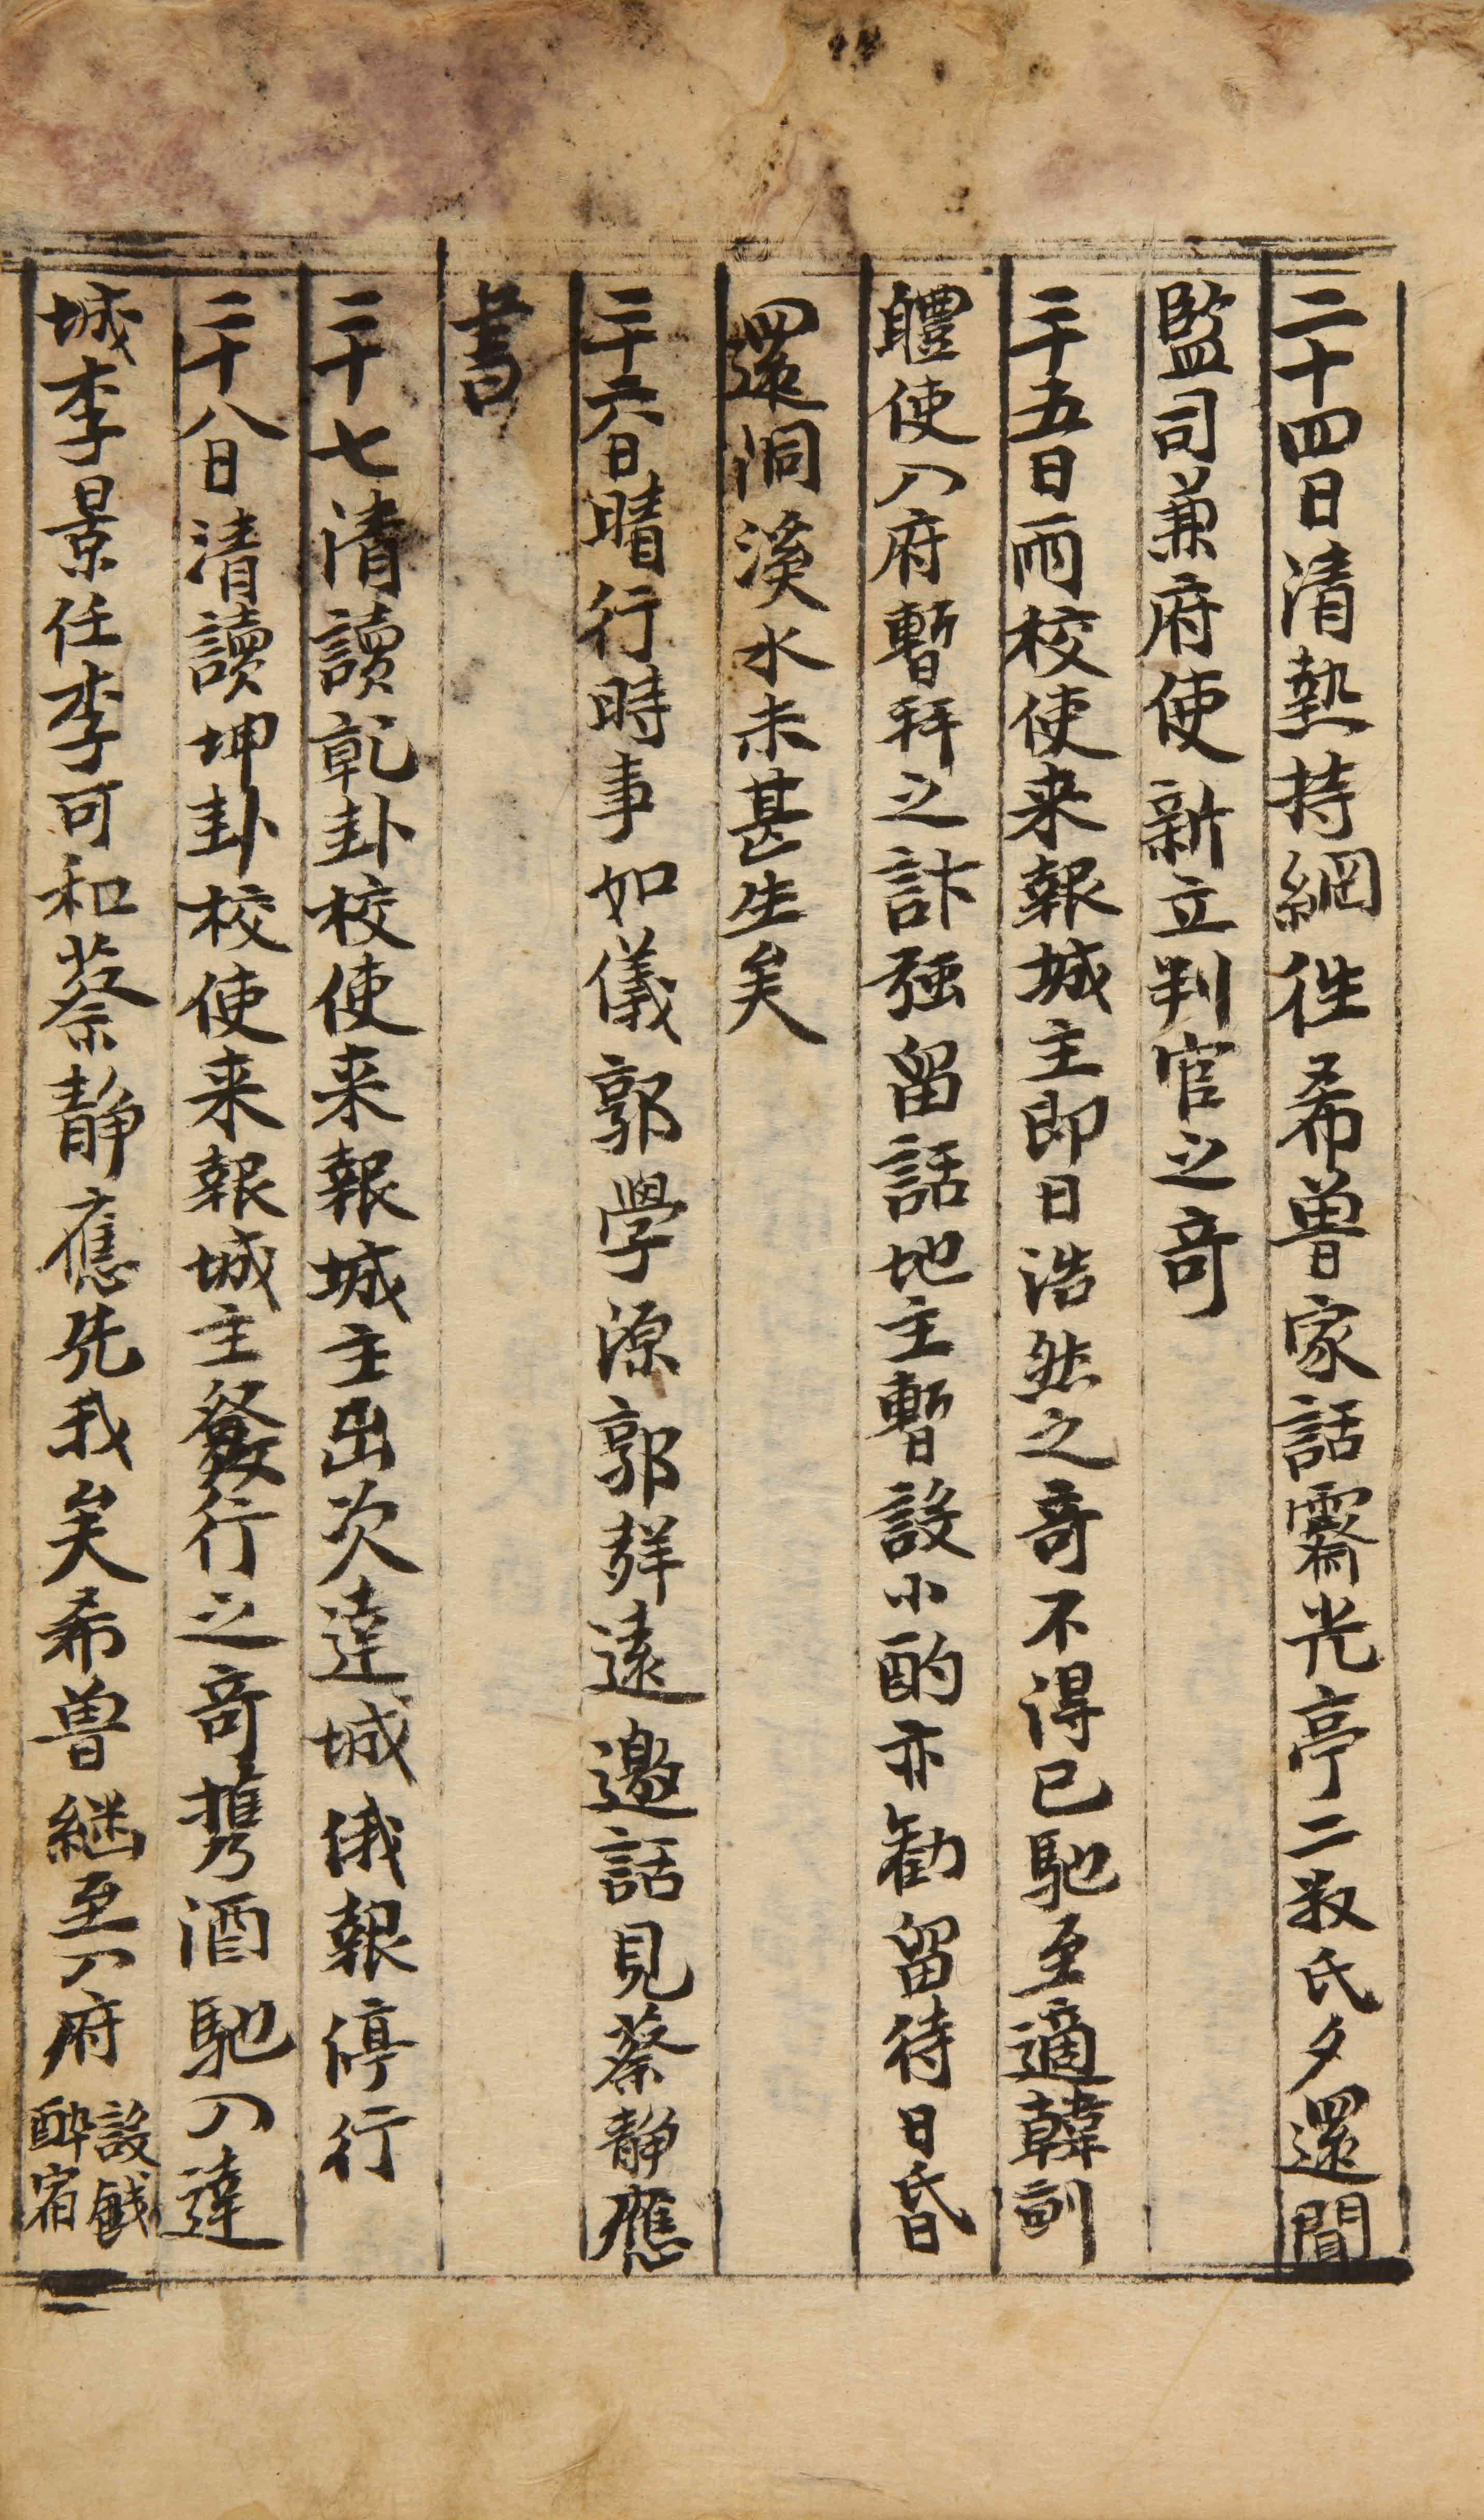 二十四日清熱持網徃希曽家話霽光亭二叔氏夕還聞
監司兼府使新立判官之奇
二十五日雨校使来報城主即日浩然之奇不得已馳至適韓訓
軆使入府暫拜之計强留話地主暫設小酌亦勸留待日昏
還洞溪水未甚生矣
二十六日晴行時事如儀郭學源郭静遠邀話見蔡静應
書
二十七清讀乾卦校使来報城主出次達城俄報停行
二十八日清讀坤卦校使来報城主發行之奇携酒馳入達
城李景任李可和蔡静應先我矣希曽継至入府設餞
醉宿